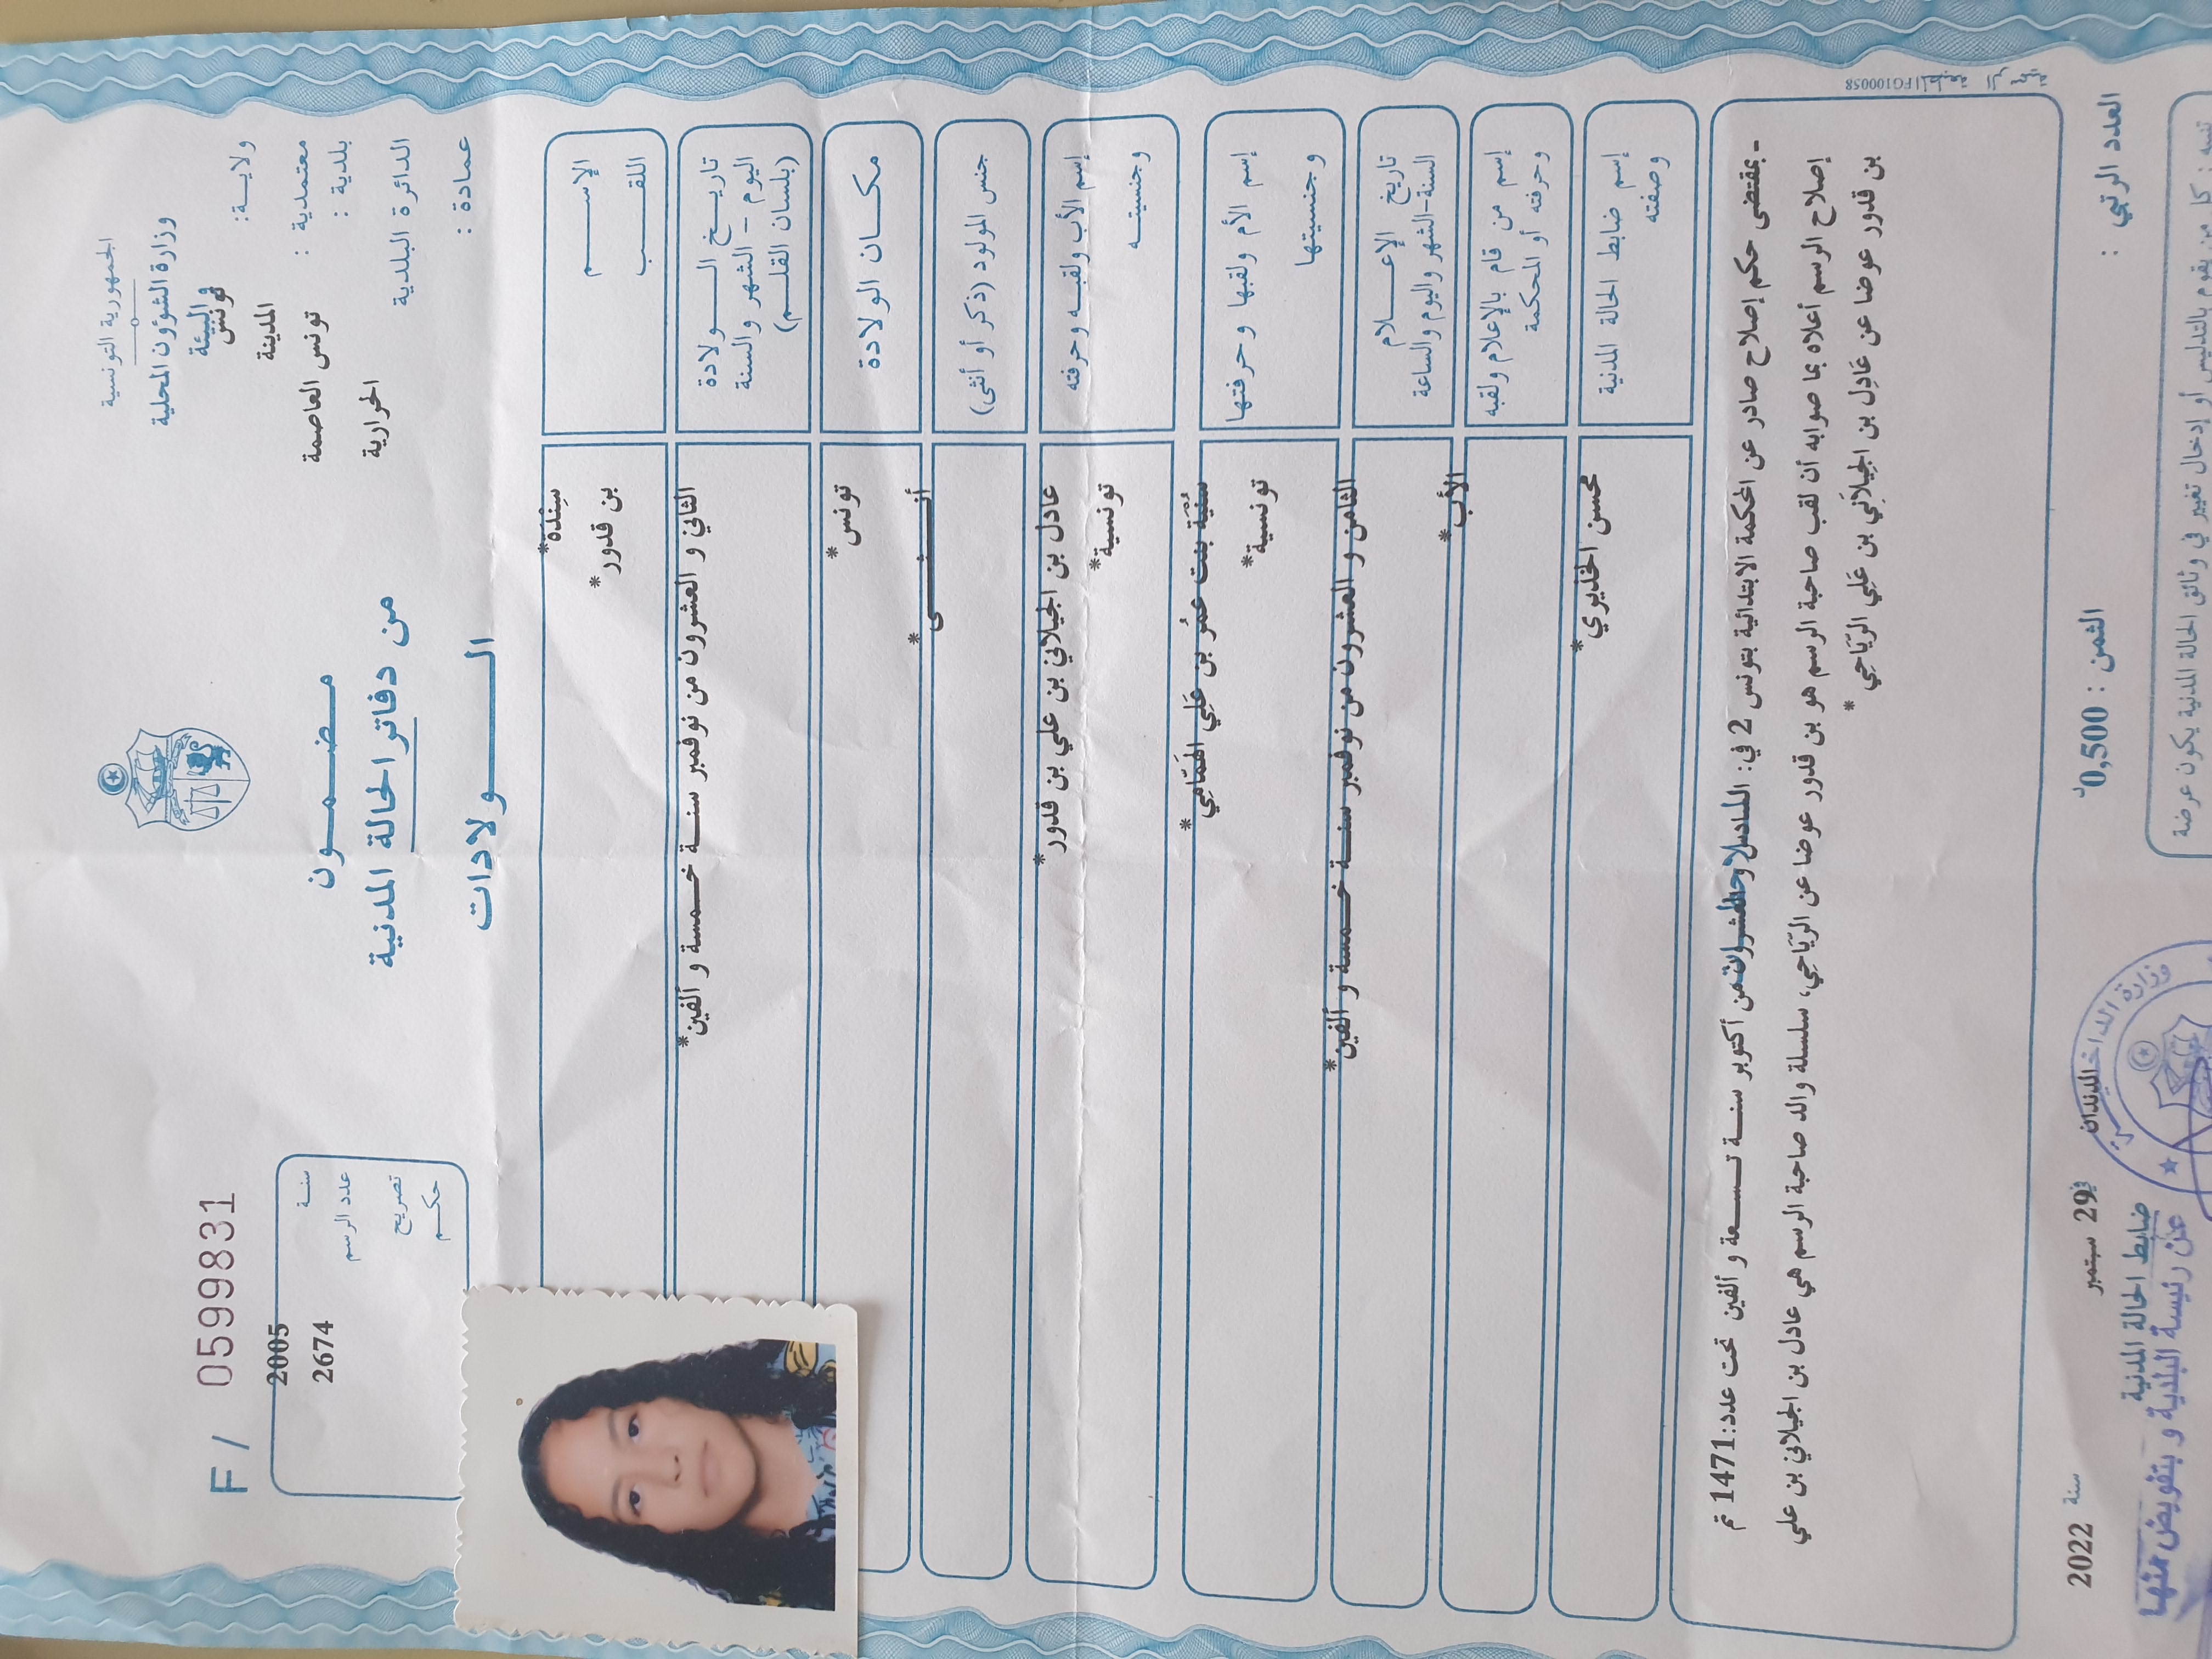 الجمهورية التونسية
وزارة الشؤون المحلية
والبيئة
ولايـة: تونس
معتمدية : المدينة
بلدية : تونس العاصمة
الدائرة البلدية الحرايرية
عمادة :
مـضـمـون
من دفاتر الحالة المدنية
الـولادات
F / 0599831
سنـة 2005
عدد الرسم 2674
تصريح
حكـم
الإســـم سِنْدَة*
اللقـــب بن قدور*
تاريــخ الــولادة الثاني و العشرون من نوفمبر سنـة خـمسة و ألفين*
اليوم - الشهر والسنة
(بلسان القلـم)
مكـان الولادة تونس*
جنس المولود (ذكر أو أنثى) أنـثـى*
إسم الأب ولقبـه وحرفته عادل بن الجيلاني بن علي بن قدور*
وجنسيتــه تونسية*
إسم الأم ولقبها وحرفتها سُنيَّة بنت عمُر بن عَلِي الهَمّامِي*
وجنسيتها تونسية*
تاريخ الإعــلام الثامن و العشرون من نوفمبر سنـة خـمسة و ألفين*
السنة-الشهر واليوم والساعة
إسم من قام بالإعلام ولقبه الأب*
وحرفته أو المحكمة
إسم ضابط الحالة المدنية محسن الخذيري*
وصفته
- بمقتضى حكم إصلاح صادر عن المحكمة الابتدائية بتونس 2 في: السادس و العشرون من أكتوبر سنـة تـسعة و ألفين تحت عدد:1471 تم
إصلاح الرسم أعلاه بما صوابه أن لقب صاحبة الرسم هو بن قدور عوضا عن الرّيَاحِي، سلسلة والد صاحبة الرسم هي عادل بن الجيلاني بن علي
بن قدور عوضا عن عَادِل بن الجِيلَانِي بن عَلِي الرّيَاحِي*
FG1000058
العدد الرتبي :
الثمن : 0,500د
الدندان في 29 سبتمبر سنة 2022
ضابط الحالة المدنية
عن رئيسة البلدية و بتفويض منها
وزارة الداخلية
تنبيه : كل من يقوم بالتدليس أو إدخال تغيير في وثائق الحالة المدنية يكون عرضة